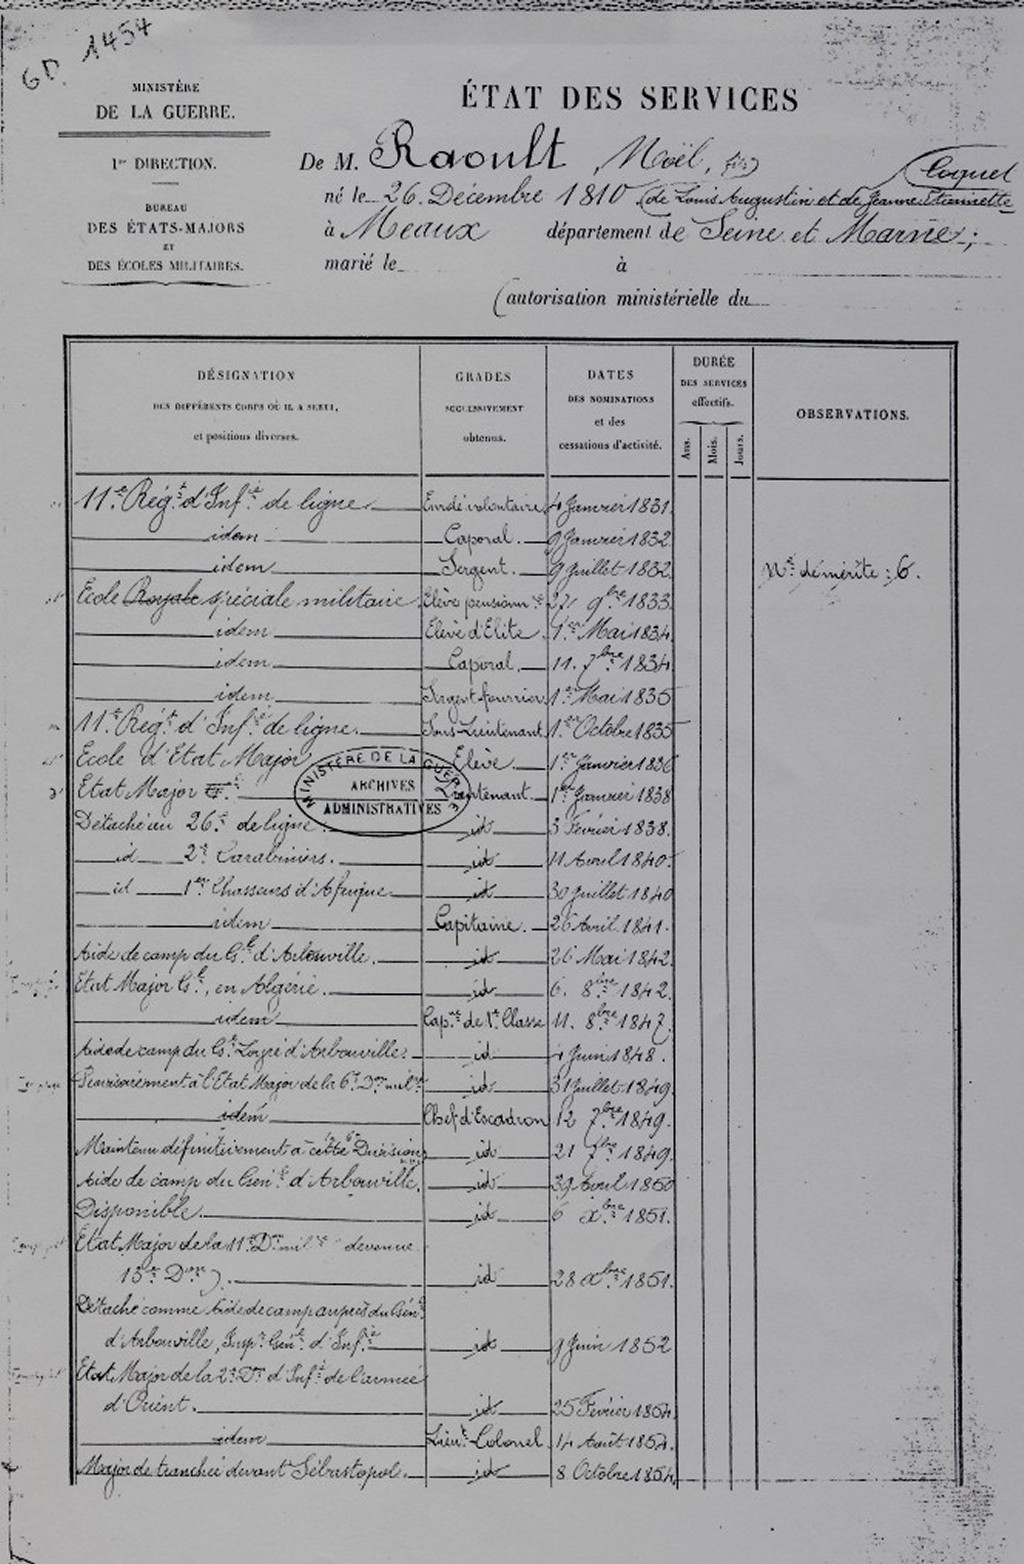 GD. 1454
MINISTÈRE
DE LA GUERRE.
1re DIRECTION.
BUREAU
DES ÉTATS-MAJORS
ET
DES ÉCOLES MILITAIRES.
ÉTAT DES SERVICES
De M. Raoult, Noël, fils Cloquet
né le 26 Décembre 1810 (de Louis Augustin et de Jeanne Etiennette
à Meaux département de Seine et Marne;
marié le à
(autorisation ministérielle du
DÉSIGNATION DES DIFFÉRENTS CORPS OÙ IL A SERVI, et positions diverses.
GRADES SUCCESSIVEMENT obtenus.
DATES DES NOMINATIONS et des cessations d'activité.
DURÉE DES SERVICES effectifs.
Ans. Mois. Jours.
OBSERVATIONS.
11e Régt d'Infie de ligne Enrôlé volontaire 4 Janvier 1831.
idem Caporal. 9 Janvier 1832.
idem Sergent. 9 Juillet 1832. No de mérite : 6.
Ecole Royale spéciale militaire Elève pensionre 27 9bre 1833.
idem Elève d'Elite 1er Mai 1834.
idem Caporal. 11. 7bre 1834
idem Sergent fourrier 1er Mai 1835
11e Régt d'Infie de ligne. Sous-Lieutenant 1er Octobre 1835
Ecole d'Etat Major Elève 1er Janvier 1836
Etat Major Lieutenant. 1er Janvier 1838
Détaché au 26e de ligne. id 3 Février 1838.
id 2e Carabiniers. id 11 Avril 1840.
id 1er Chasseurs d'Afrique id 30 Juillet 1840
idem Capitaine. 26 Avril 1841.
Aide de camp du Gl d'Arbouville. id 26 Mai 1842.
Etat Major Gl, en Algérie. id 6. 8bre 1842.
idem Capne de 1re Classe 11. 8bre 1847.
Aide de camp du Gl Loyré d'Arbouville. id 4 Juin 1848.
Provisoirement à l'Etat Major de la 6e Don milre id 31 Juillet 1849.
idem Chef d'Escadron 12 7bre 1849.
Maintenu définitivement à cette 6e Division id 21 7bre 1849.
Aide de camp du Génl d'Arbouville. id Avril 1850
Disponible. id 6 xbre 1851.
Etat Major de la 11e Don milre devenue
15e Don). id 28 xbre 1851.
Détaché comme Aide de camp auprès du Génl
d'Arbouville, Inspr Génl d'Infie id 9 Juin 1852
Etat Major de la 2e Don d'Infie de l'armée
d'Orient. id 25 Février 1854.
idem Lieut Colonel 14 Août 1854.
Major de tranchée devant Sébastopol. id 8 Octobre 1854.
MINISTÈRE DE LA GUERRE
ARCHIVES
ADMINISTRATIVES